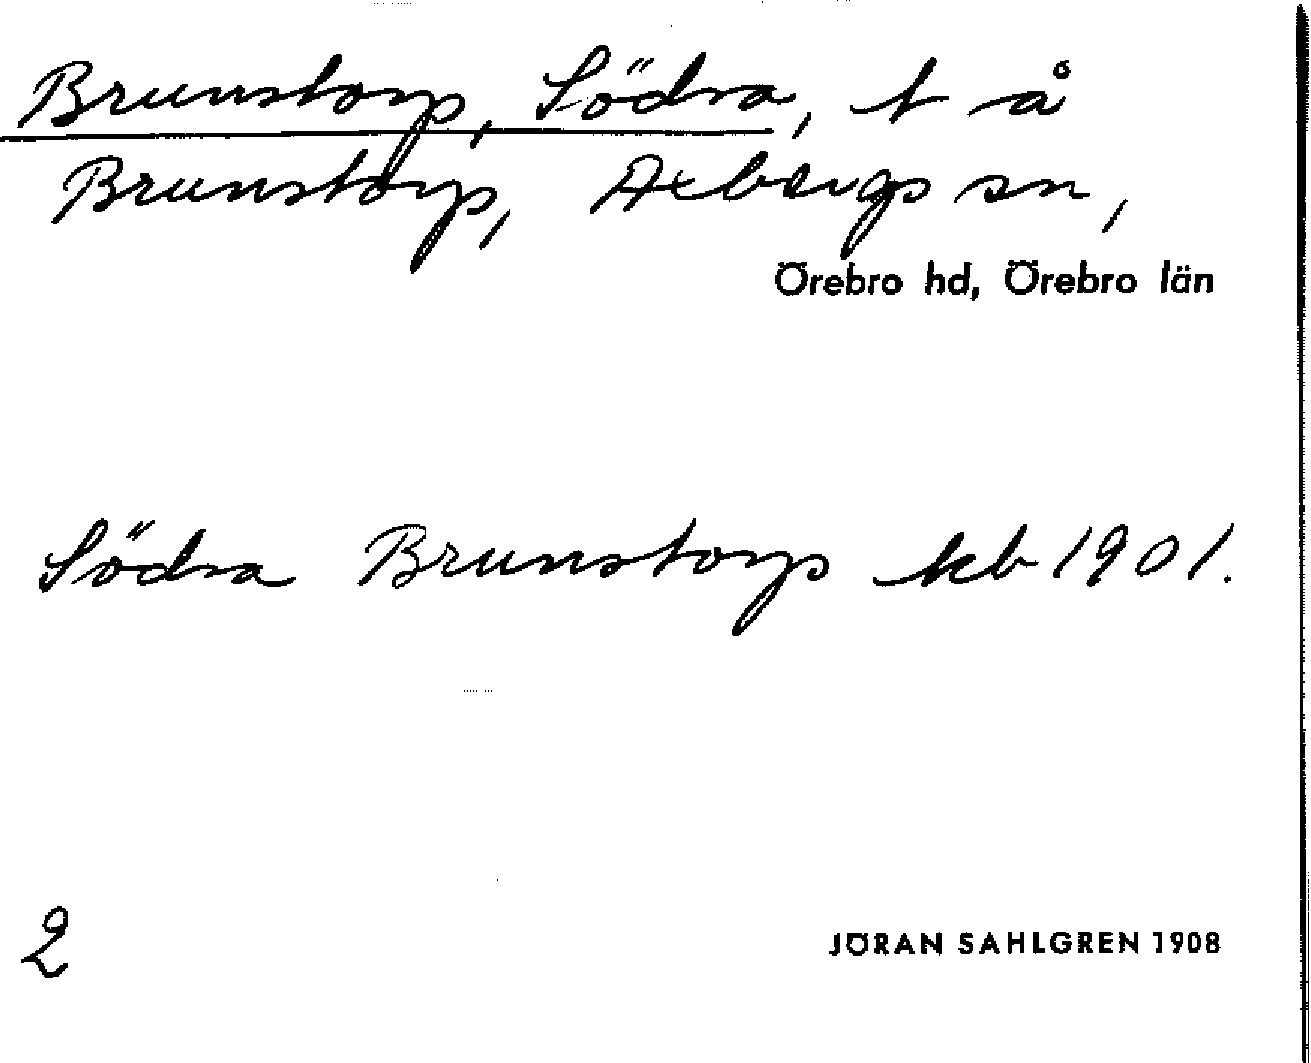 Brunstorp, Södra, t å
Brunstorp, Axbergs sn,
Örebro hd, Örebro län
Södra Brunstorp kb 1901.
2
JÖRAN SAHLGREN 1908